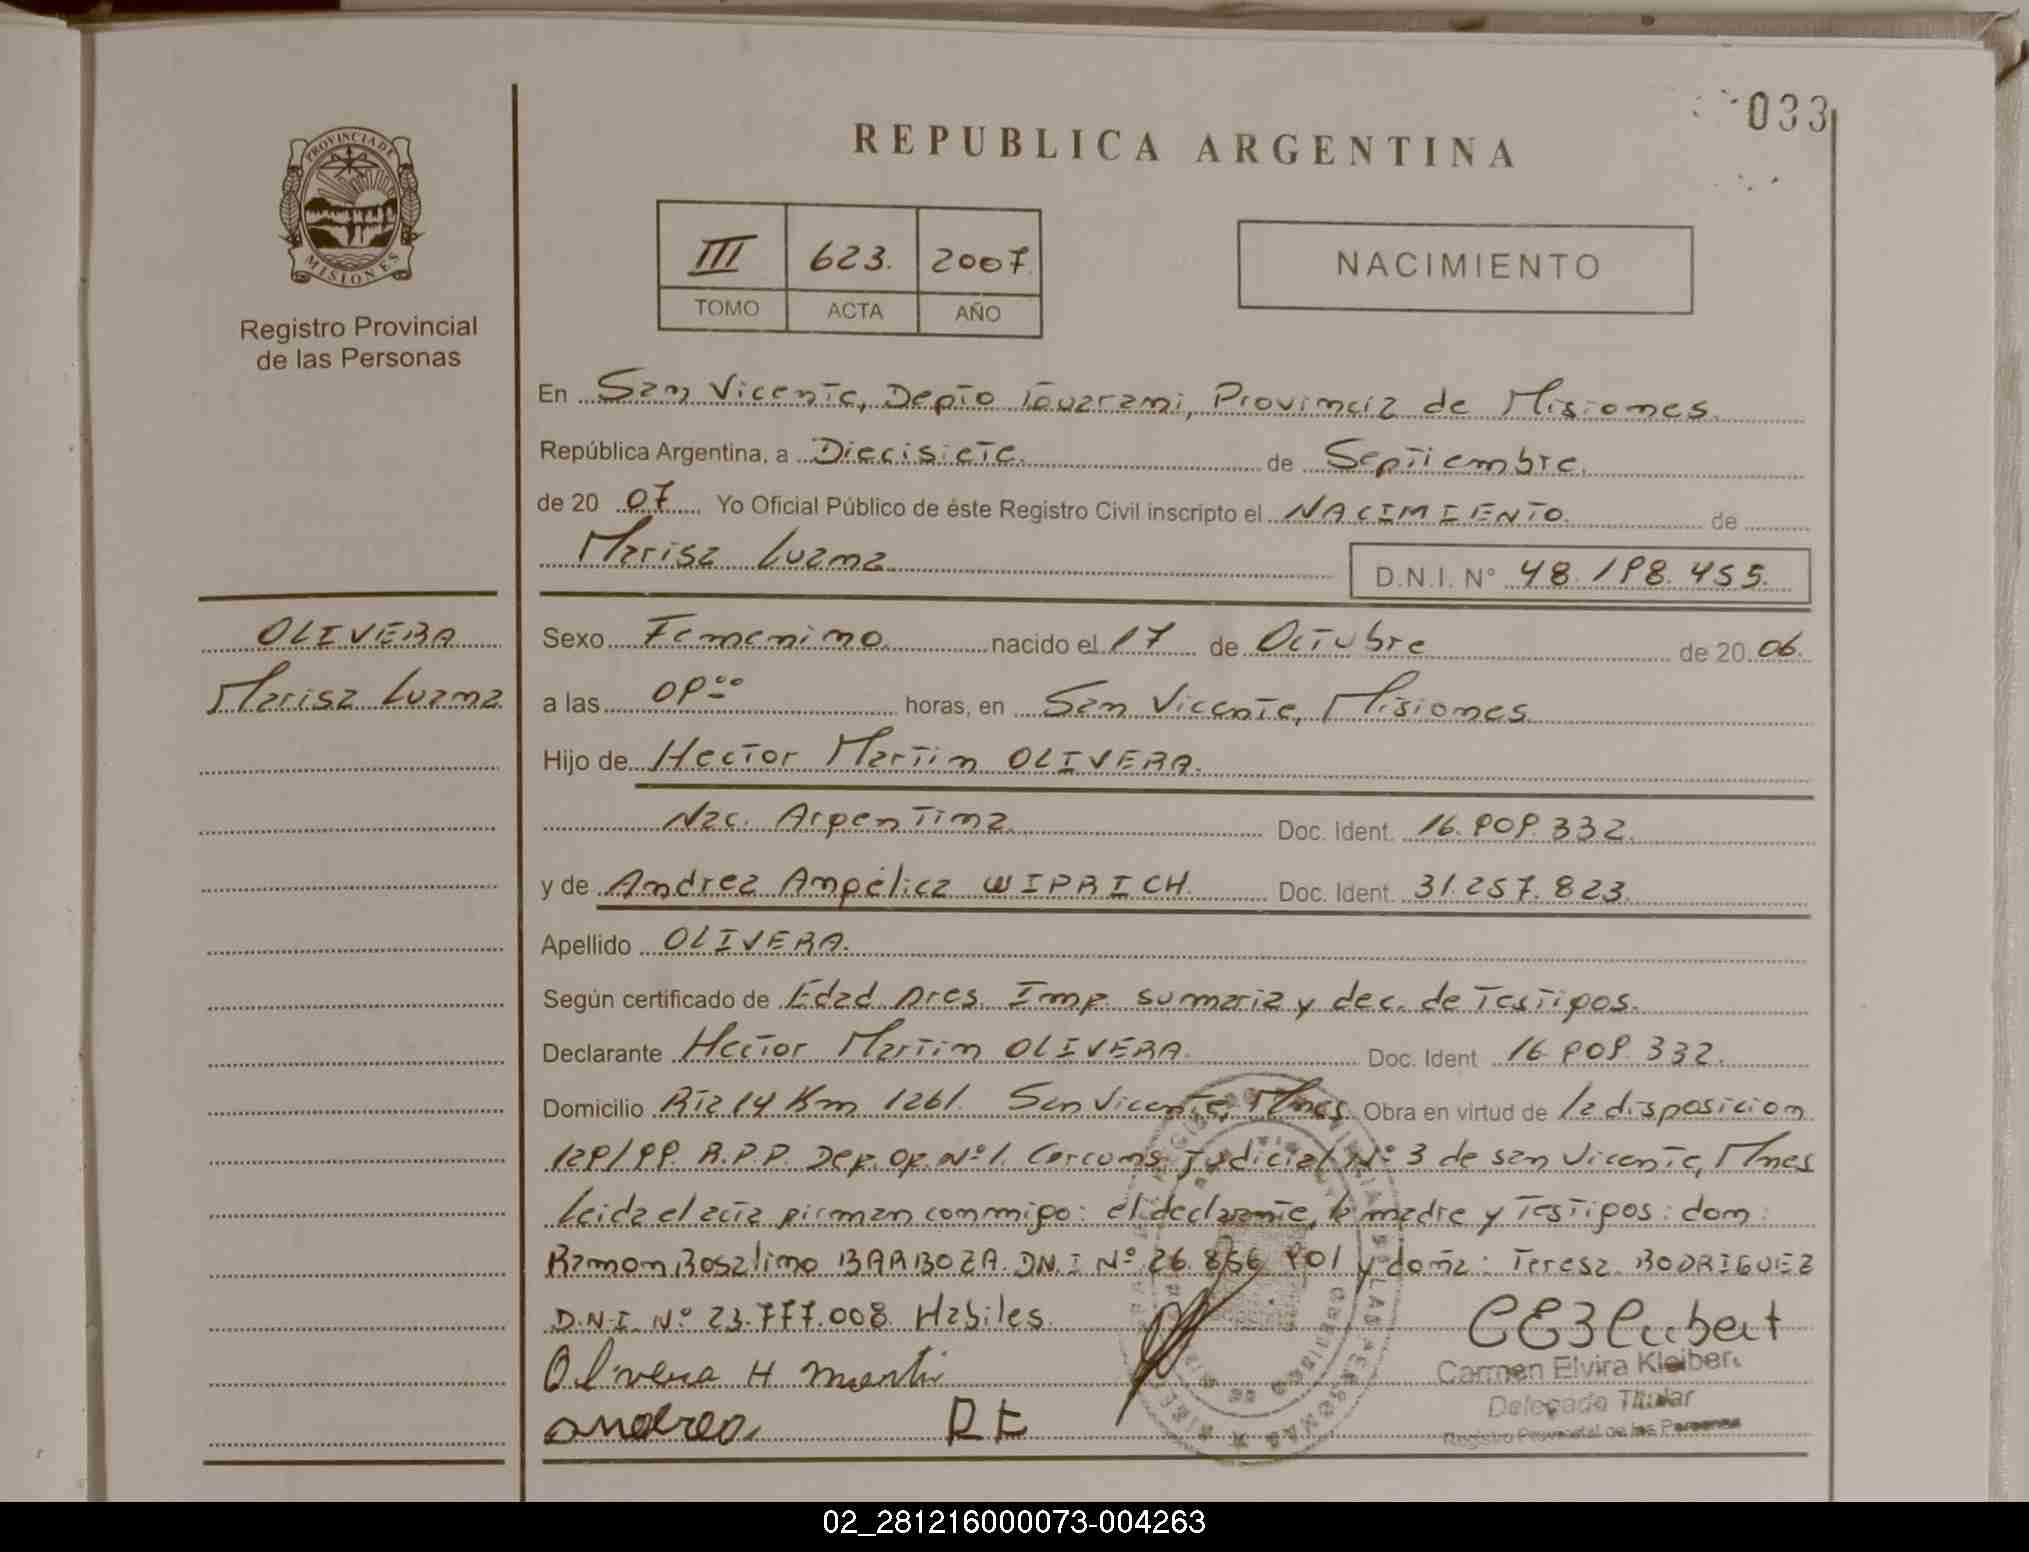 033
REPUBLICA ARGENTINA
PROVINCIA DE
MISIONES
Registro Provincial
de las Personas
III 623. 2007
TOMO ACTA AÑO
NACIMIENTO
En San Vicente, Depto Guarami, Provincia de Misiones.
República Argentina, a Diecisiete. de Septiembre.
de 20 07 Yo Oficial Público de éste Registro Civil inscripto el NACIMIENTO de
Marisa Luana D.N.I. N° 48.198.455.
OLIVERA
Marisa Luana
Sexo Femenino nacido el 17 de Octubre de 20 06.
a las 09 00 horas, en San Vicente, Misiones
Hijo de Hector Martin OLIVERA.
Nac. Argentina Doc. Ident. 16.909.332.
y de Andrea Angélica WIPRICH. Doc. Ident. 31.257.823.
Apellido OLIVERA.
Según certificado de Edad Pres. Imp. sumaria y dec. de Testigos.
Declarante Hector Martin OLIVERA. Doc. Ident 16.909.332.
Domicilio Rta 14 Km 1261. San Vicente, Mnes. Obra en virtud de la disposicion
129/99. R.P.P. Dep. Op. N°1. Circuns. Judicial N°3 de san Vicente, Mnes
Leida el acta firman conmigo: el declarante, la madre y Testigos: don:
Ramon Rosalino BARBOZA. DN.I N° 26.856.901 y doña: Teresa RODRIGUEZ
D.N.I. N° 23.777.008. Habiles.
Olivera H Martin
andrea R E
Carmen Elvira Kleiber
Delegado Titular
Registro Provincial de las Personas
02_281216000073-004263